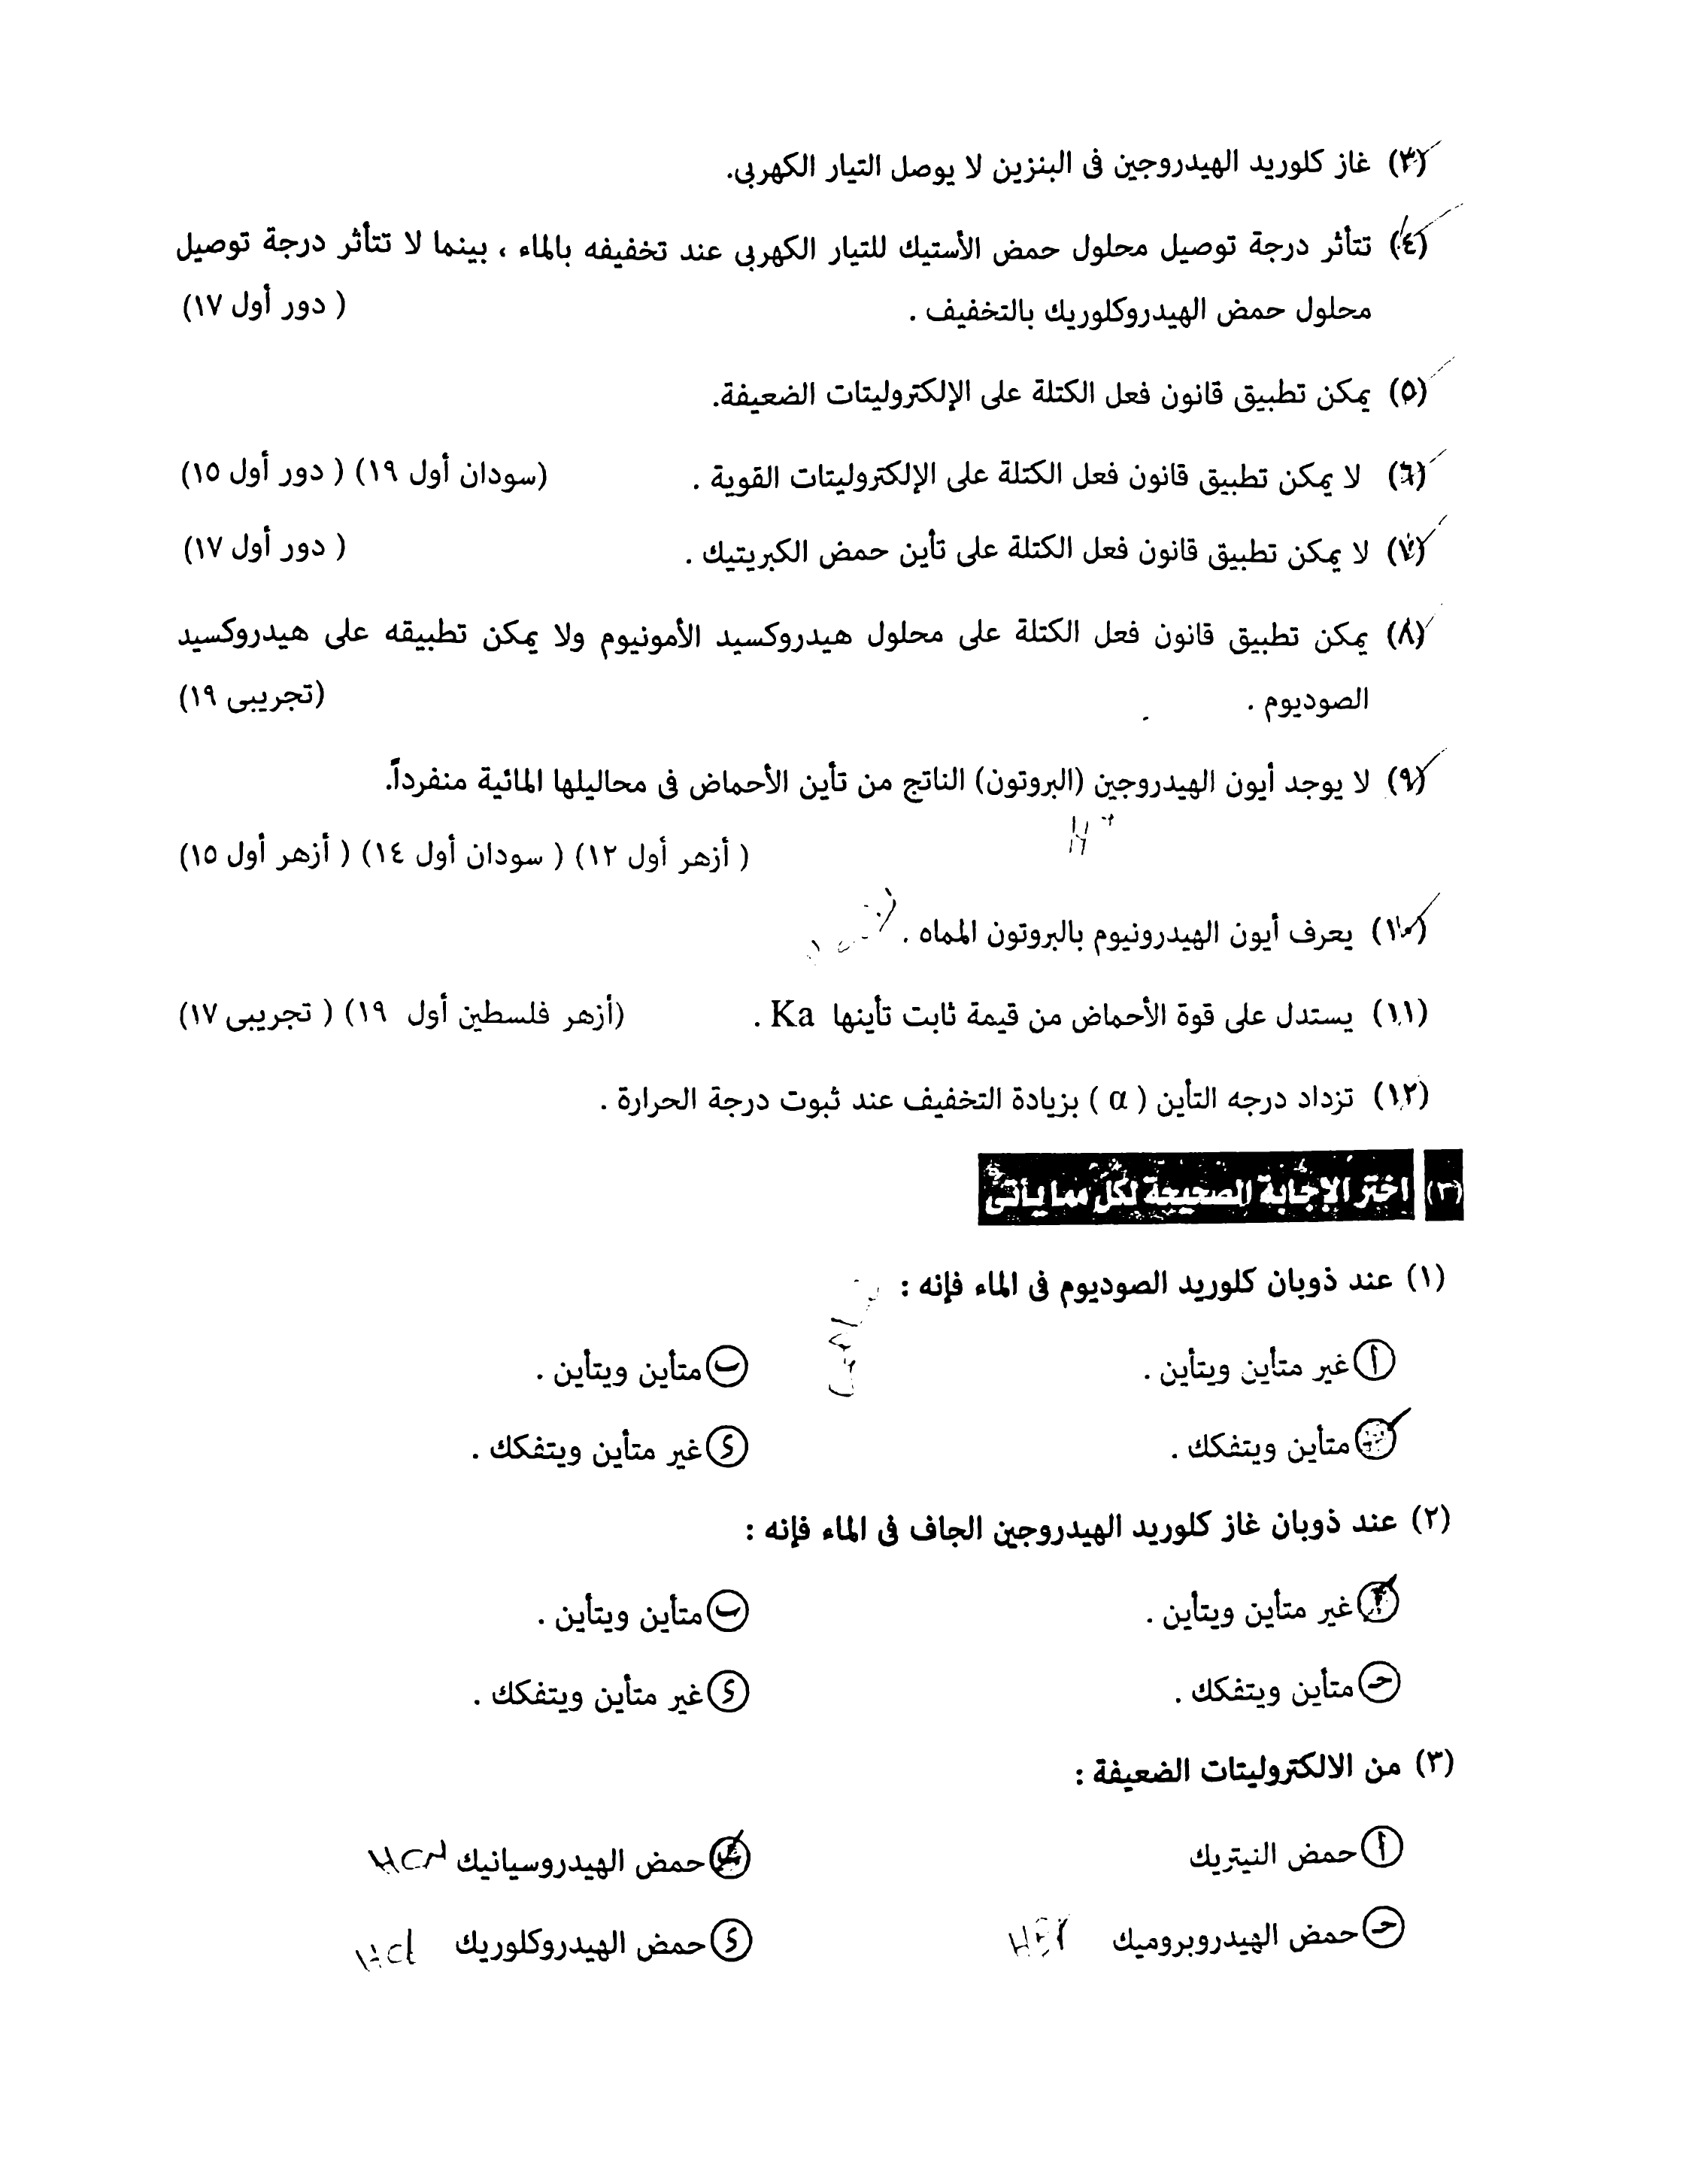 (٣) غاز كلوريد الهيدروجين فى البنزين لا يوصل التيار الكهربى.
(٤) تتأثر درجة توصيل محلول حمض الأستيك للتيار الكهربى عند تخفيفه بالماء ، بينما لا تتأثر درجة توصيل
محلول حمض الهيدروكلوريك بالتخفيف . ( دور أول ١٧)
(٥) يمكن تطبيق قانون فعل الكتلة على الإلكتروليتات الضعيفة.
(٦) لا يمكن تطبيق قانون فعل الكتلة على الإلكتروليتات القوية . (سودان أول ١٩) ( دور أول ١٥)
(٧) لا يمكن تطبيق قانون فعل الكتلة على تأين حمض الكبريتيك . ( دور أول ١٧)
(٨) يمكن تطبيق قانون فعل الكتلة على محلول هيدروكسيد الأمونيوم ولا يمكن تطبيقه على هيدروكسيد
الصوديوم . (تجريبى ١٩)
(٩) لا يوجد أيون الهيدروجين (البروتون) الناتج من تأين الأحماض فى محاليلها المائية منفرداً.
H+
( أزهر أول ١٢) ( سودان أول ١٤) ( أزهر أول ١٥)
(١٠) يعرف أيون الهيدرونيوم بالبروتون المماه .
(١١) يستدل على قوة الأحماض من قيمة ثابت تأينها Ka . (أزهر فلسطين أول ١٩) ( تجريبى ١٧)
(١٢) تزداد درجه التأين ( α ) بزيادة التخفيف عند ثبوت درجة الحرارة .
(٣) اختر الإجابة الصحيحة لكل مما يأتى
(١) عند ذوبان كلوريد الصوديوم فى الماء فإنه :
أ غير متأين ويتأين . ب متأين ويتأين .
حـ متأين ويتفكك . د غير متأين ويتفكك .
(٢) عند ذوبان غاز كلوريد الهيدروجين الجاف فى الماء فإنه :
أ غير متأين ويتأين . ب متأين ويتأين .
حـ متأين ويتفكك . د غير متأين ويتفكك .
(٣) من الالكتروليتات الضعيفة :
أ حمض النيتريك ب حمض الهيدروسيانيك HCN
حـ حمض الهيدروبروميك HBr د حمض الهيدروكلوريك HCl